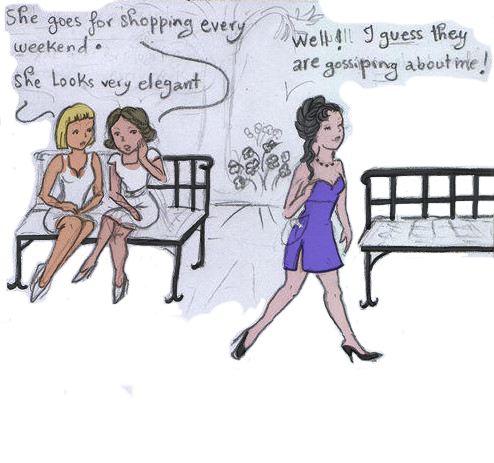 She goes for shopping every
weekend.
She Looks very elegant
Well!!! I guess they
are gossiping about me!